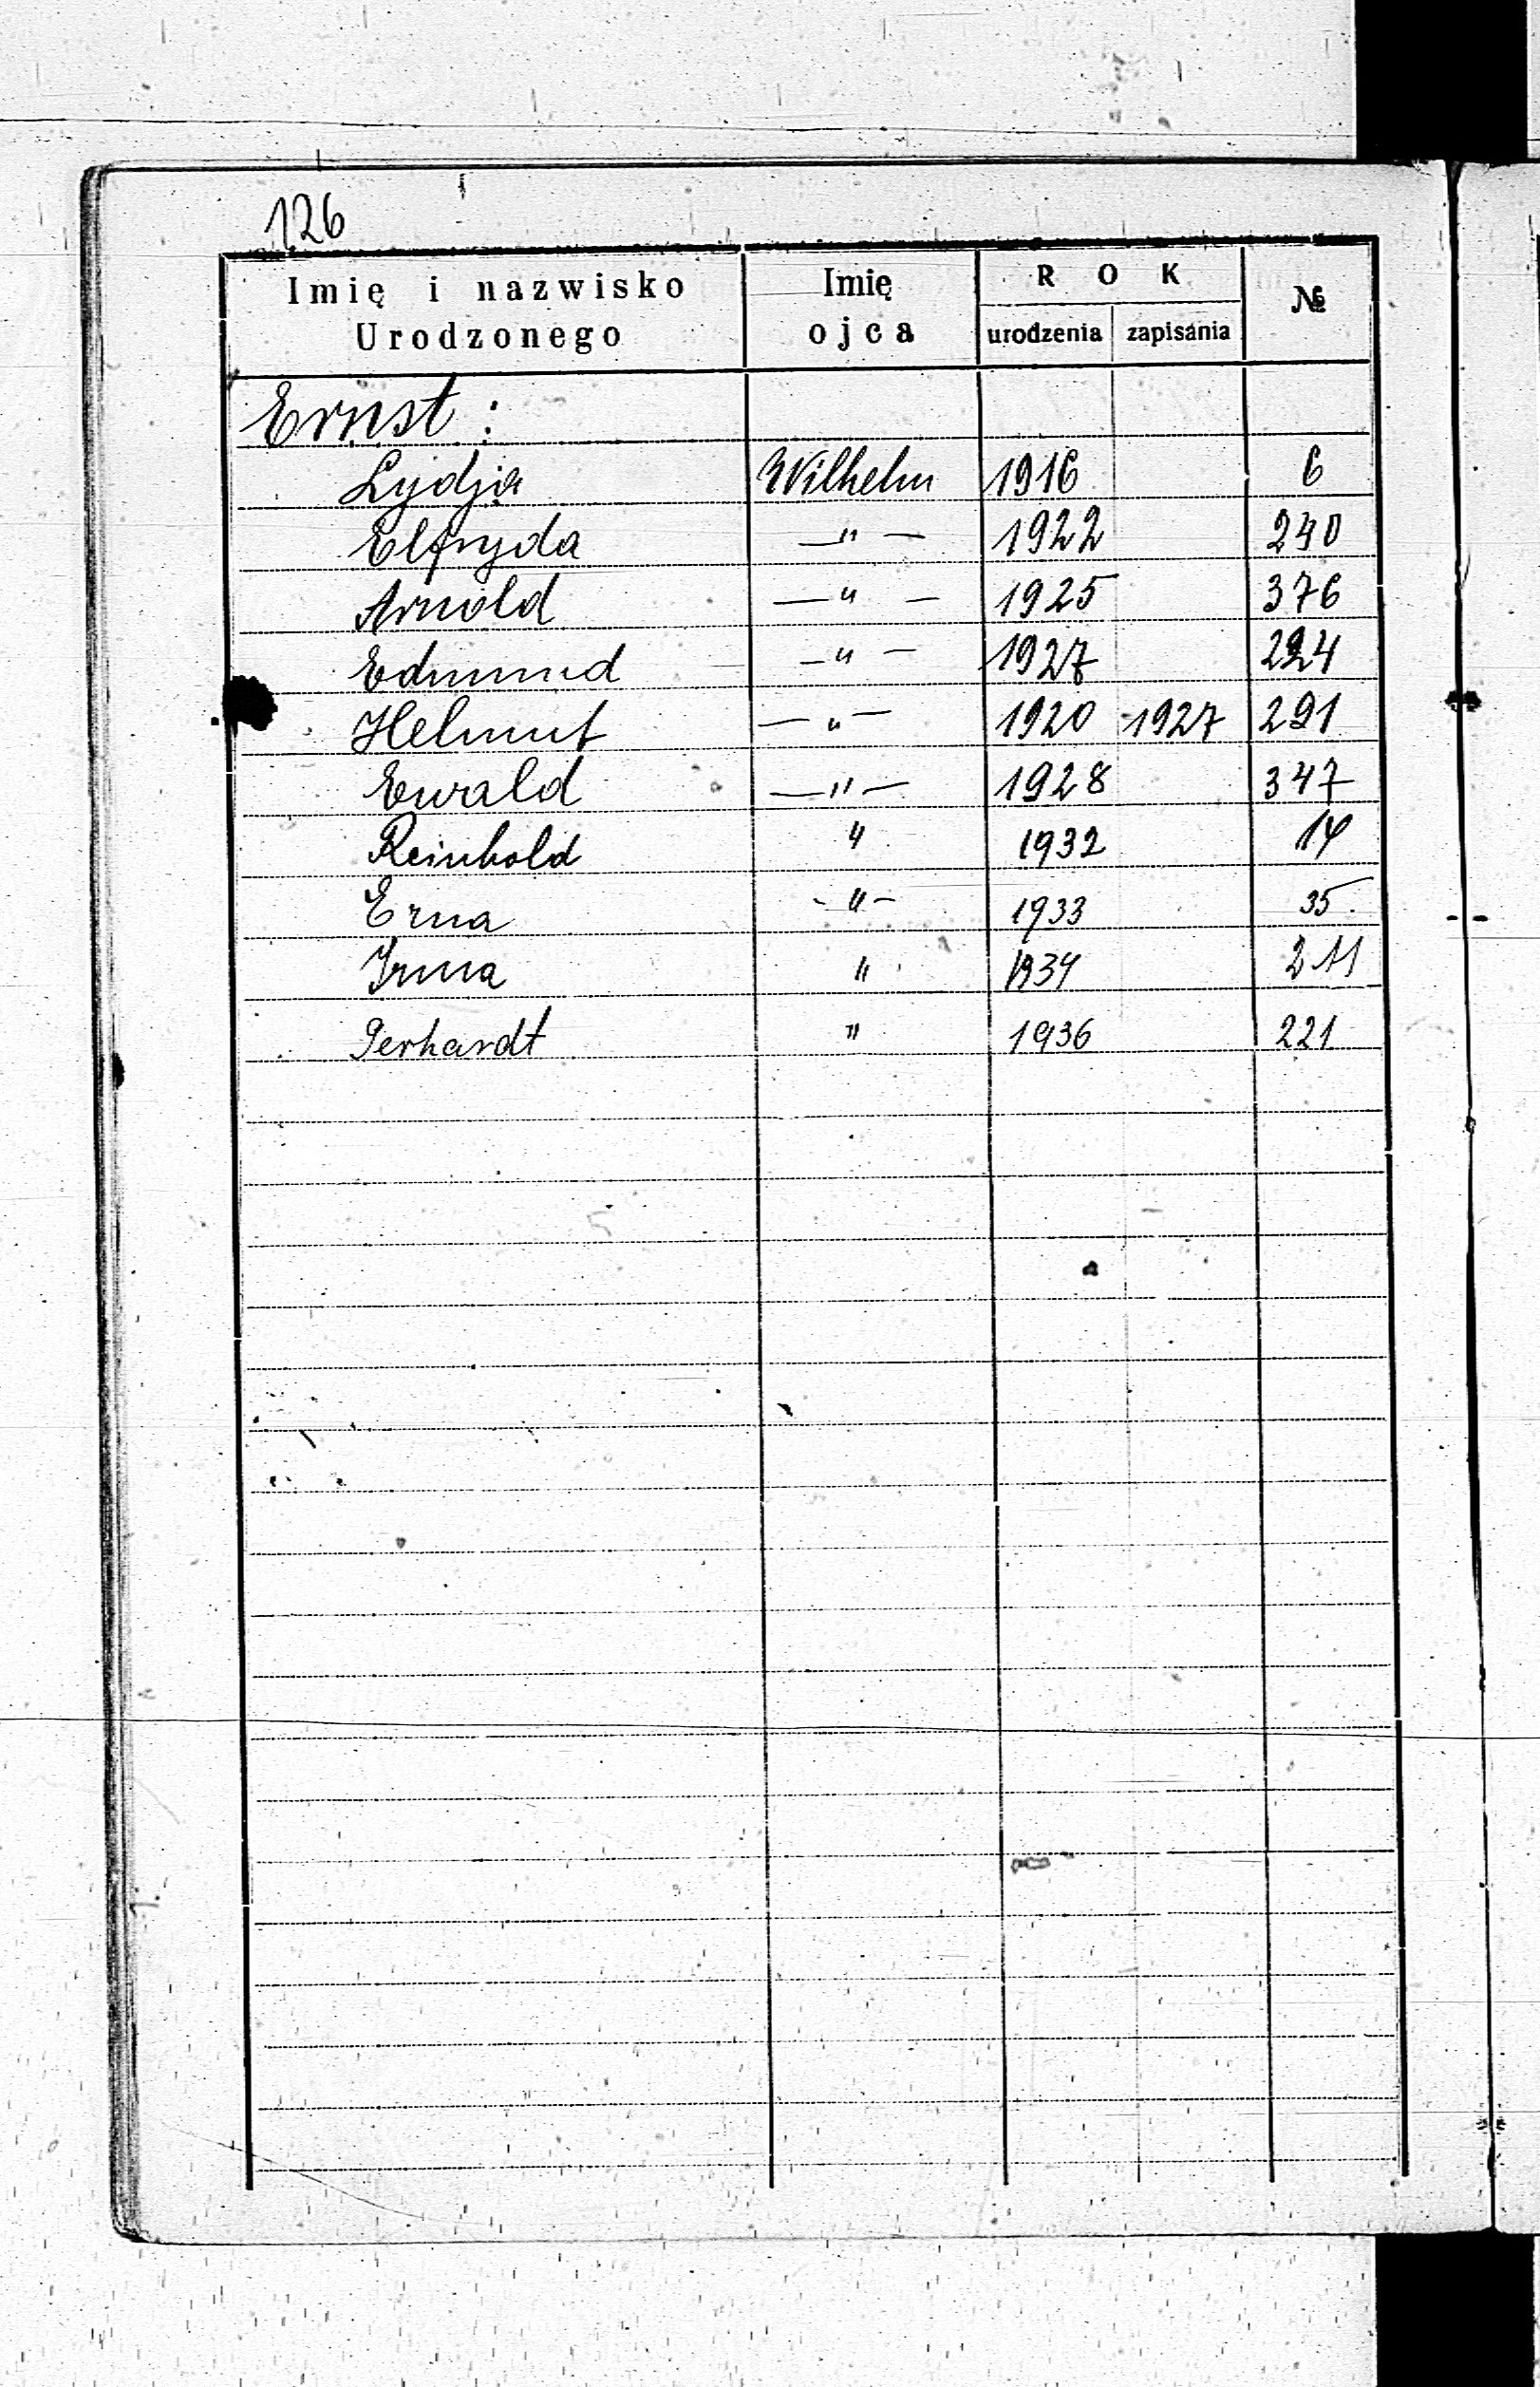 126
Imię i nazwisko Urodzonego | Imię ojca | ROK urodzenia | ROK zapisania | №
Ernst :
Lydja | Wilhelm | 1916 | | 6
Elfryda | — " — | 1922 | | 240
Arnold | — " — | 1925 | | 376
Edmund | — " — | 1927 | | 224
Helmut | — " — | 1920 | 1927 | 291
Ewald | — " — | 1928 | | 347
Reinhold | " | 1932 | | 14
Erna | - " - | 1933 | | 35.
Irma | " | 1934 | | 211
Gerhardt | " | 1936 | | 221